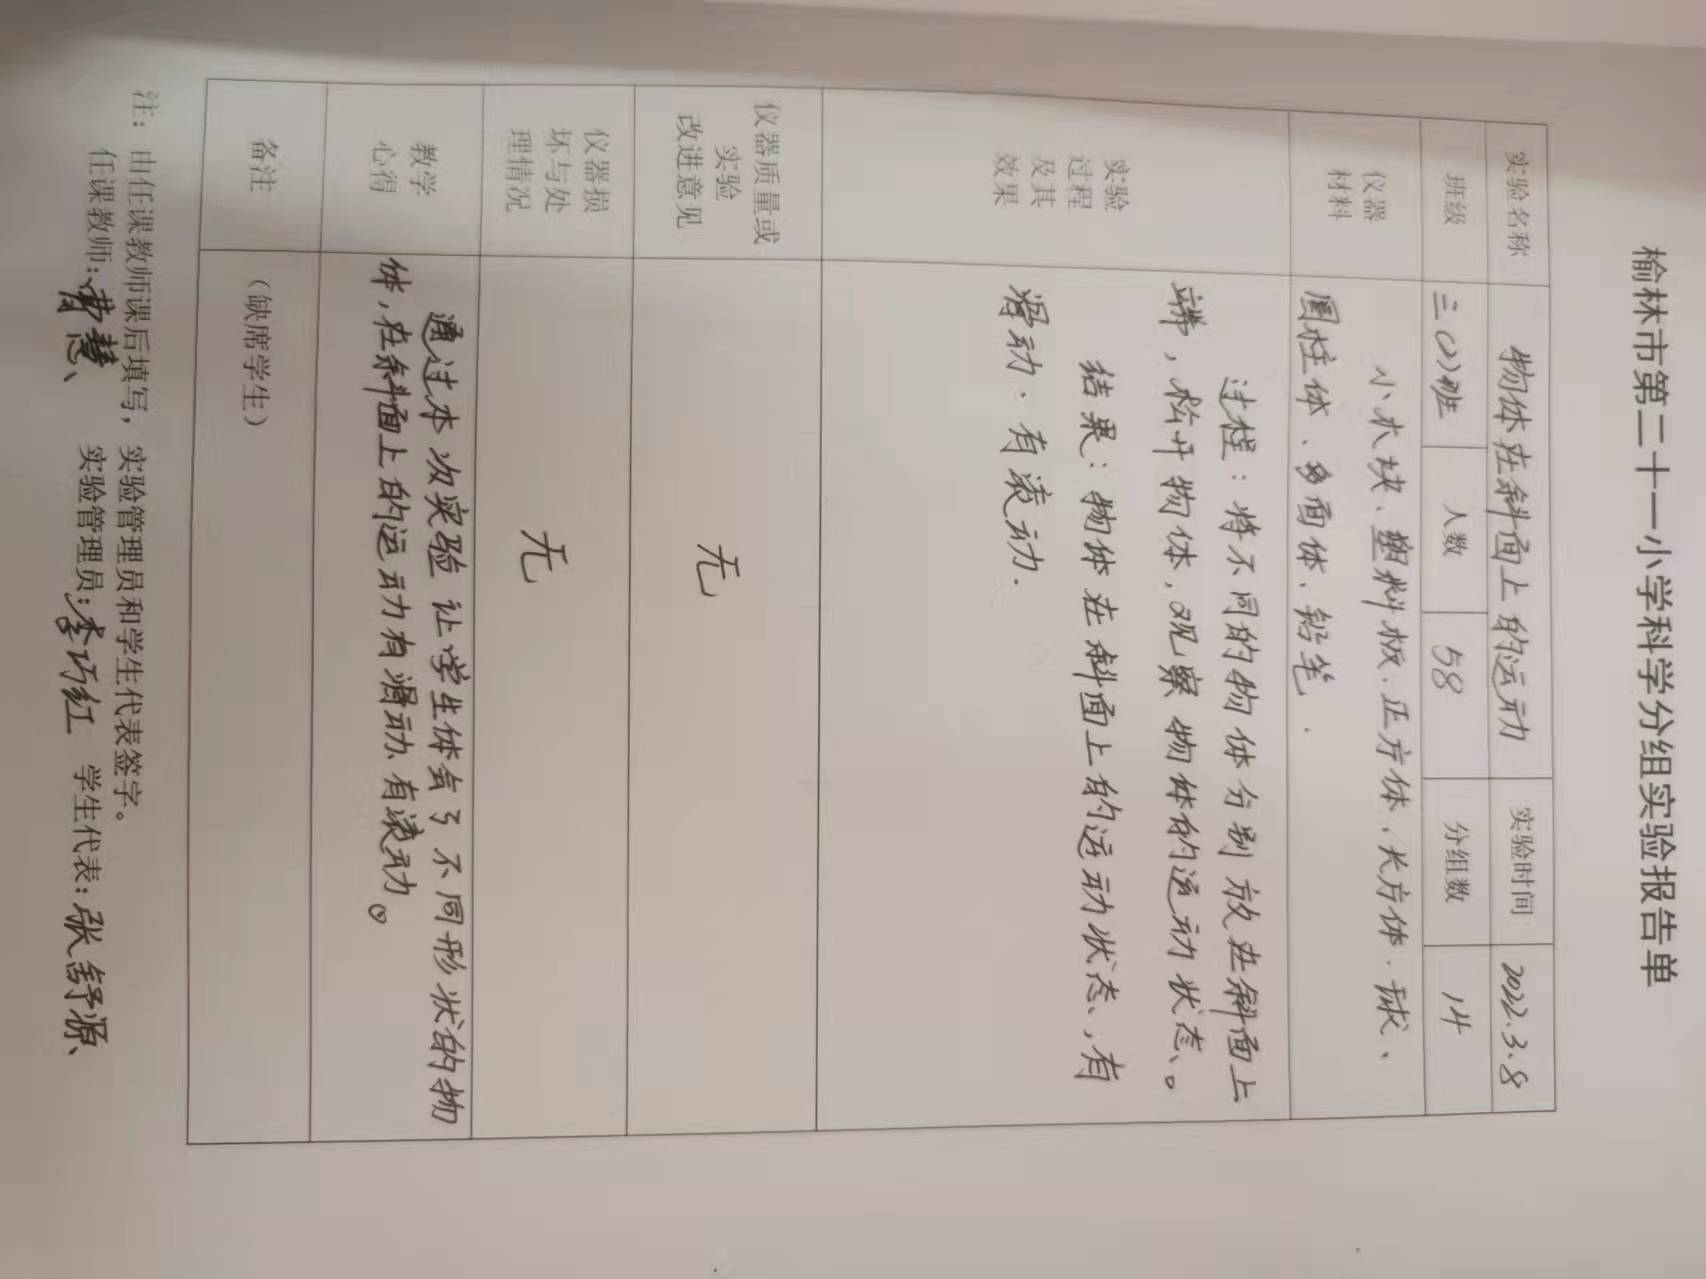 榆林市第二十一小学科学分组实验报告单
实验名称 物体在斜面上的运动 实验时间 2022.3.8
班级 三(2)班 人数 58 分组数 14
仪器
材料
小木块、塑料板、正方体、长方体、球、
圆柱体、多面体、铅笔.
实验
过程
及其
效果
过程：将不同的物体分别放在斜面上
端，松开物体，观察物体的运动状态。
结果：物体在斜面上的运动状态，有
滑动.有滚动.
仪器质量或
实验
改进意见
无
仪器损
坏与处
理情况
无
教学
心得
通过本次实验让学生体会了不同形状的物
体，在斜面上的运动有滑动、有滚动。
备注
（缺席学生）
注：由任课教师课后填写，实验管理员和学生代表签字。
任课教师：慧 实验管理员：李巧红 学生代表：张舒源